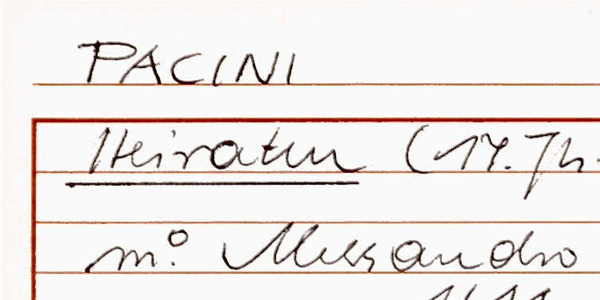 PACINI
Heiraten (17. Jh.
m.º Alessandro